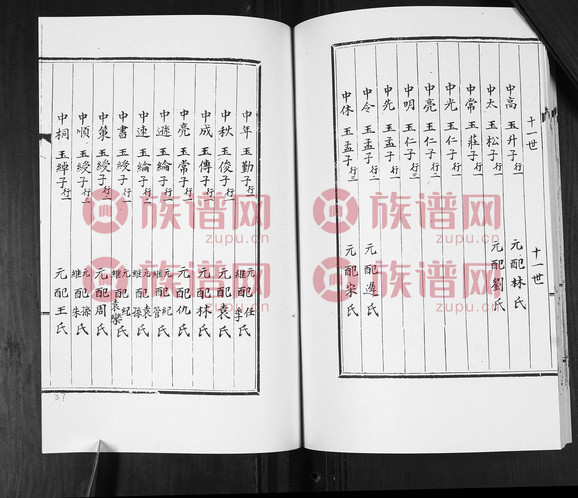 十一世 十一世
中高 玉升子 行一 元配林氏
中太 玉松子 行一 元配劉氏
中常 玉莊子 行一
中光 玉仁子 行一
中亮 玉仁子 行二
中明 玉仁子 行三
中先 玉孟子 行一
中令 玉孟子 行二 元配遲氏
中休 玉孟子 行三 元配宋氏
中年 玉勤子 行一 元配任氏 繼李氏
中秋 玉俊子 行一 元配袁氏
中成 玉傳子 行一 元配林氏
中亮 玉常子 行一 元配仇氏
中遜 玉綸子 行一 元配紀氏 繼管氏
中速 玉綸子 行二 元配袁氏 繼孫氏
中書 玉綬子 行一 元配紀氏 繼袁欒氏
中策 玉綬子 行二 元配周氏
中順 玉綬子 行三 元配孫氏 繼朱氏
中桐 玉綽子 行一 元配王氏
37
族谱网
zupu.cn
族谱网
zupu.cn
族谱网
zupu.cn
族谱网
zupu.cn